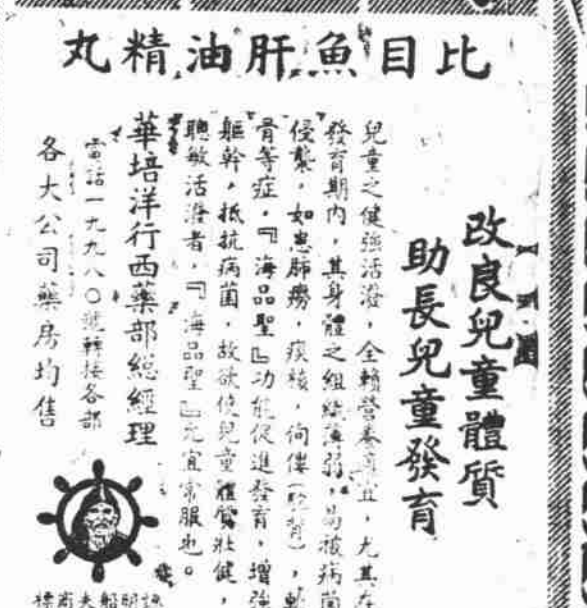 比目魚肝油精丸
改良兒童體質
助長兒童發育
兒童之健強活潑，全賴營養適宜，尤其在
發育期內，其身體之組織薄弱，易被病菌
侵襲，如患肺癆，瘰核，佝僂（駝背），軟
骨等症，『海品聖』功能促進發育，增強
軀幹，抵抗病菌，故欲使兒童體質壯健，
聰敏活潑者，『海品聖』尤宜常服也。
華培洋行西藥部總經理
電話一九九八〇號轉接各部
各大公司藥房均售
標商夫船明認